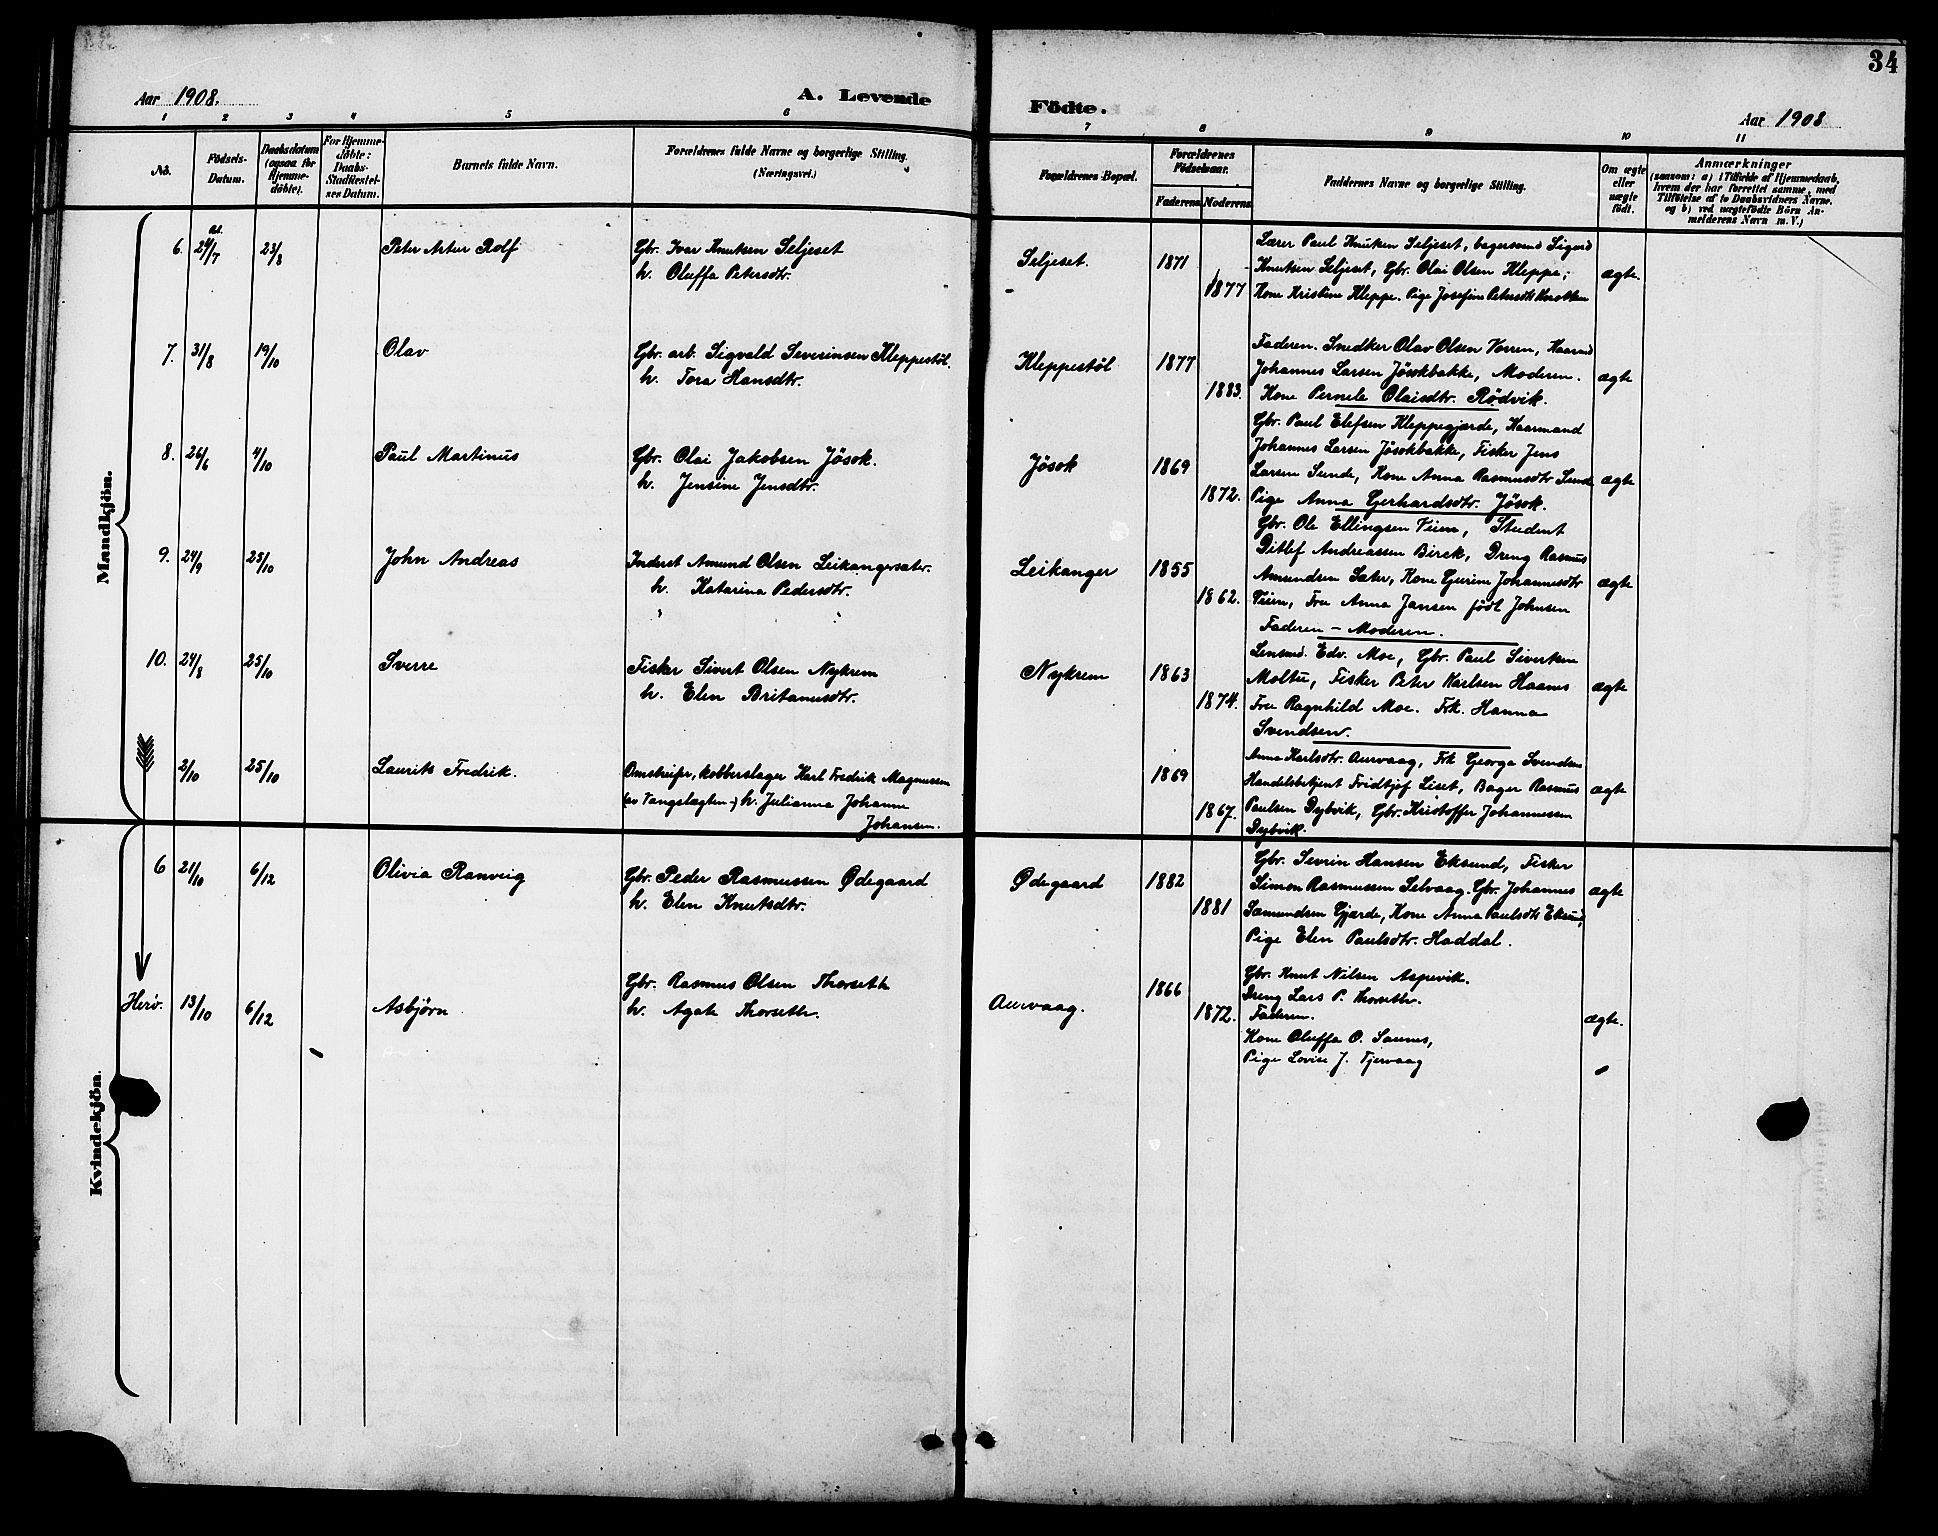 34
Aar 1908.
A. Levende
Födte.
Aar 1908
1 2 3 4 5 6 7 8 9 10 11
No.
Födsels-Datum.
Daabsdatum (ogsaa for Hjemme-döbte).
For Hjemme-döbte: Daabs-Stadfæstel-ses Datum.
Barnets fulde Navn.
Forældrenes fulde Navne og borgerlige Stilling. (Næringsvei.)
Forældrenes Bopæl.
Forældrenes Födselsaar.
Faderens. Moderens.
Faddernes Navne og borgerlige Stilling.
Om ægte eller uægte födt.
Anmærkninger
(saasom: a) i Tilfælde af Hjemmedaab,
hvem der har forrettet samme, med
Tilföielse af to Daabsvidners Navne.
og b) ved uægtefödte Börn An-
melderens Navn m. V.)
Mandkjön.
6. 24/7 23/8 Peter Arter Rolf
Gbr. Ivar Knutsen Seljeset
h. Oluffa Petersdtr.
Seljeset. 1871 1877
Lærer Paul Knutsen Seljeset, bagersvend Sigvard
Knutsen Seljeset, Gbr. Olai Olsen Kleppe;
Kone Kristine Kleppe. Pige Josefine Petersdtr Knotten
ægte.
7. 31/8 19/10 Olav
Gbr. arb. Sigvald Severinsen Kleppestøl.
h. Tora Hansdtr.
Kleppestøl 1877 1883.
Faderen. Snedker Olav Olsen Vorren, Kaarmd
Johannes Larsen Jøsokbakke, Moderen.
Kone Pernele Olaisdtr. Rødvik.
ægte
8. 26/6 4/10 Paul Martinus
Gbr. Olai Jakobsen Jøsok.
h. Jensine Jensdtr.
Jøsok 1869 1872.
Gbr. Paul Elefsen Kleppegjærde, Kaarmand
Johannes Larsen Jøsokbakke, Fisker Jens
Larsen Sunde, Kone Anna Rasmusdtr Sunde
Pige Anna Gerhardsdtr. Jøsok.
ægte
9. 24/9 25/10 John Andreas
Inderst Amund Olsen Leikangersæter.
h. Katarina Pedersdtr.
Leikanger 1855 1862.
Gbr. Ole Ellingsen Tuen, Student
Ditlef Andreassen Birck, Dreng Rasmus
Amundsen Sæter, Kone Gurine Johannesdtr
Tuen, Fru Anna Jansen født Johnsen
Faderen - Moderen.
ægte
10. 24/8 25/10 Sverre
Fisker Sivert Olsen Nykrem
h. Elen Britanusdtr.
Nykrem 1863 1874.
Lensmd. Edv. Moe, Gbr. Paul Sivertsen
Moltu, Fisker Peter Karlsen Haanes
Fru Ragnhild Moe. Frk. Hanna
Svendsen.
ægte
2/10 25/10 Laurits Fredrik.
Omstreifer, kobberslager Karl Fredrik Magnussen
(av Vangslægten) h. Julianna Johanne
Johansen.
1869 1867.
Anna Karlsdtr. Aurvaag, Frk Georga Svendsen
Handelsbetjent Fridtjof Liset, Bager Rasmus
Paulsen Dybvik, Gbr. Kristoffer Johannessen
Dybvik.
ægte
Kvindekjön.
6 21/10 6/12 Olivia Ranveig
Gbr. Peder Rasmussen Ødegaard
h. Elen Knutsdtr.
Ødegaard 1882 1881
Gbr. Sevrin Hansen Eksund, Fisker
Simon Rasmussen Selvaag. Gbr. Johannes
Samundsen Gjærde, Kone Anna Paulsdtr Eksund,
Pige Elen Paulsdtr. Haddal.
ægte
Herö. 13/10 6/12 Asbjørn
Gbr. Rasmus Olsen Thorseth
h. Agate Thorseth.
Aurvaag. 1866 1872.
Gbr. Knut Nilsen Aspevik.
Dreng Lars P. Thorseth.
Faderen.
Kone Oluffa O. Saunes,
Pige Lovise J. Tjervaag
ægte.